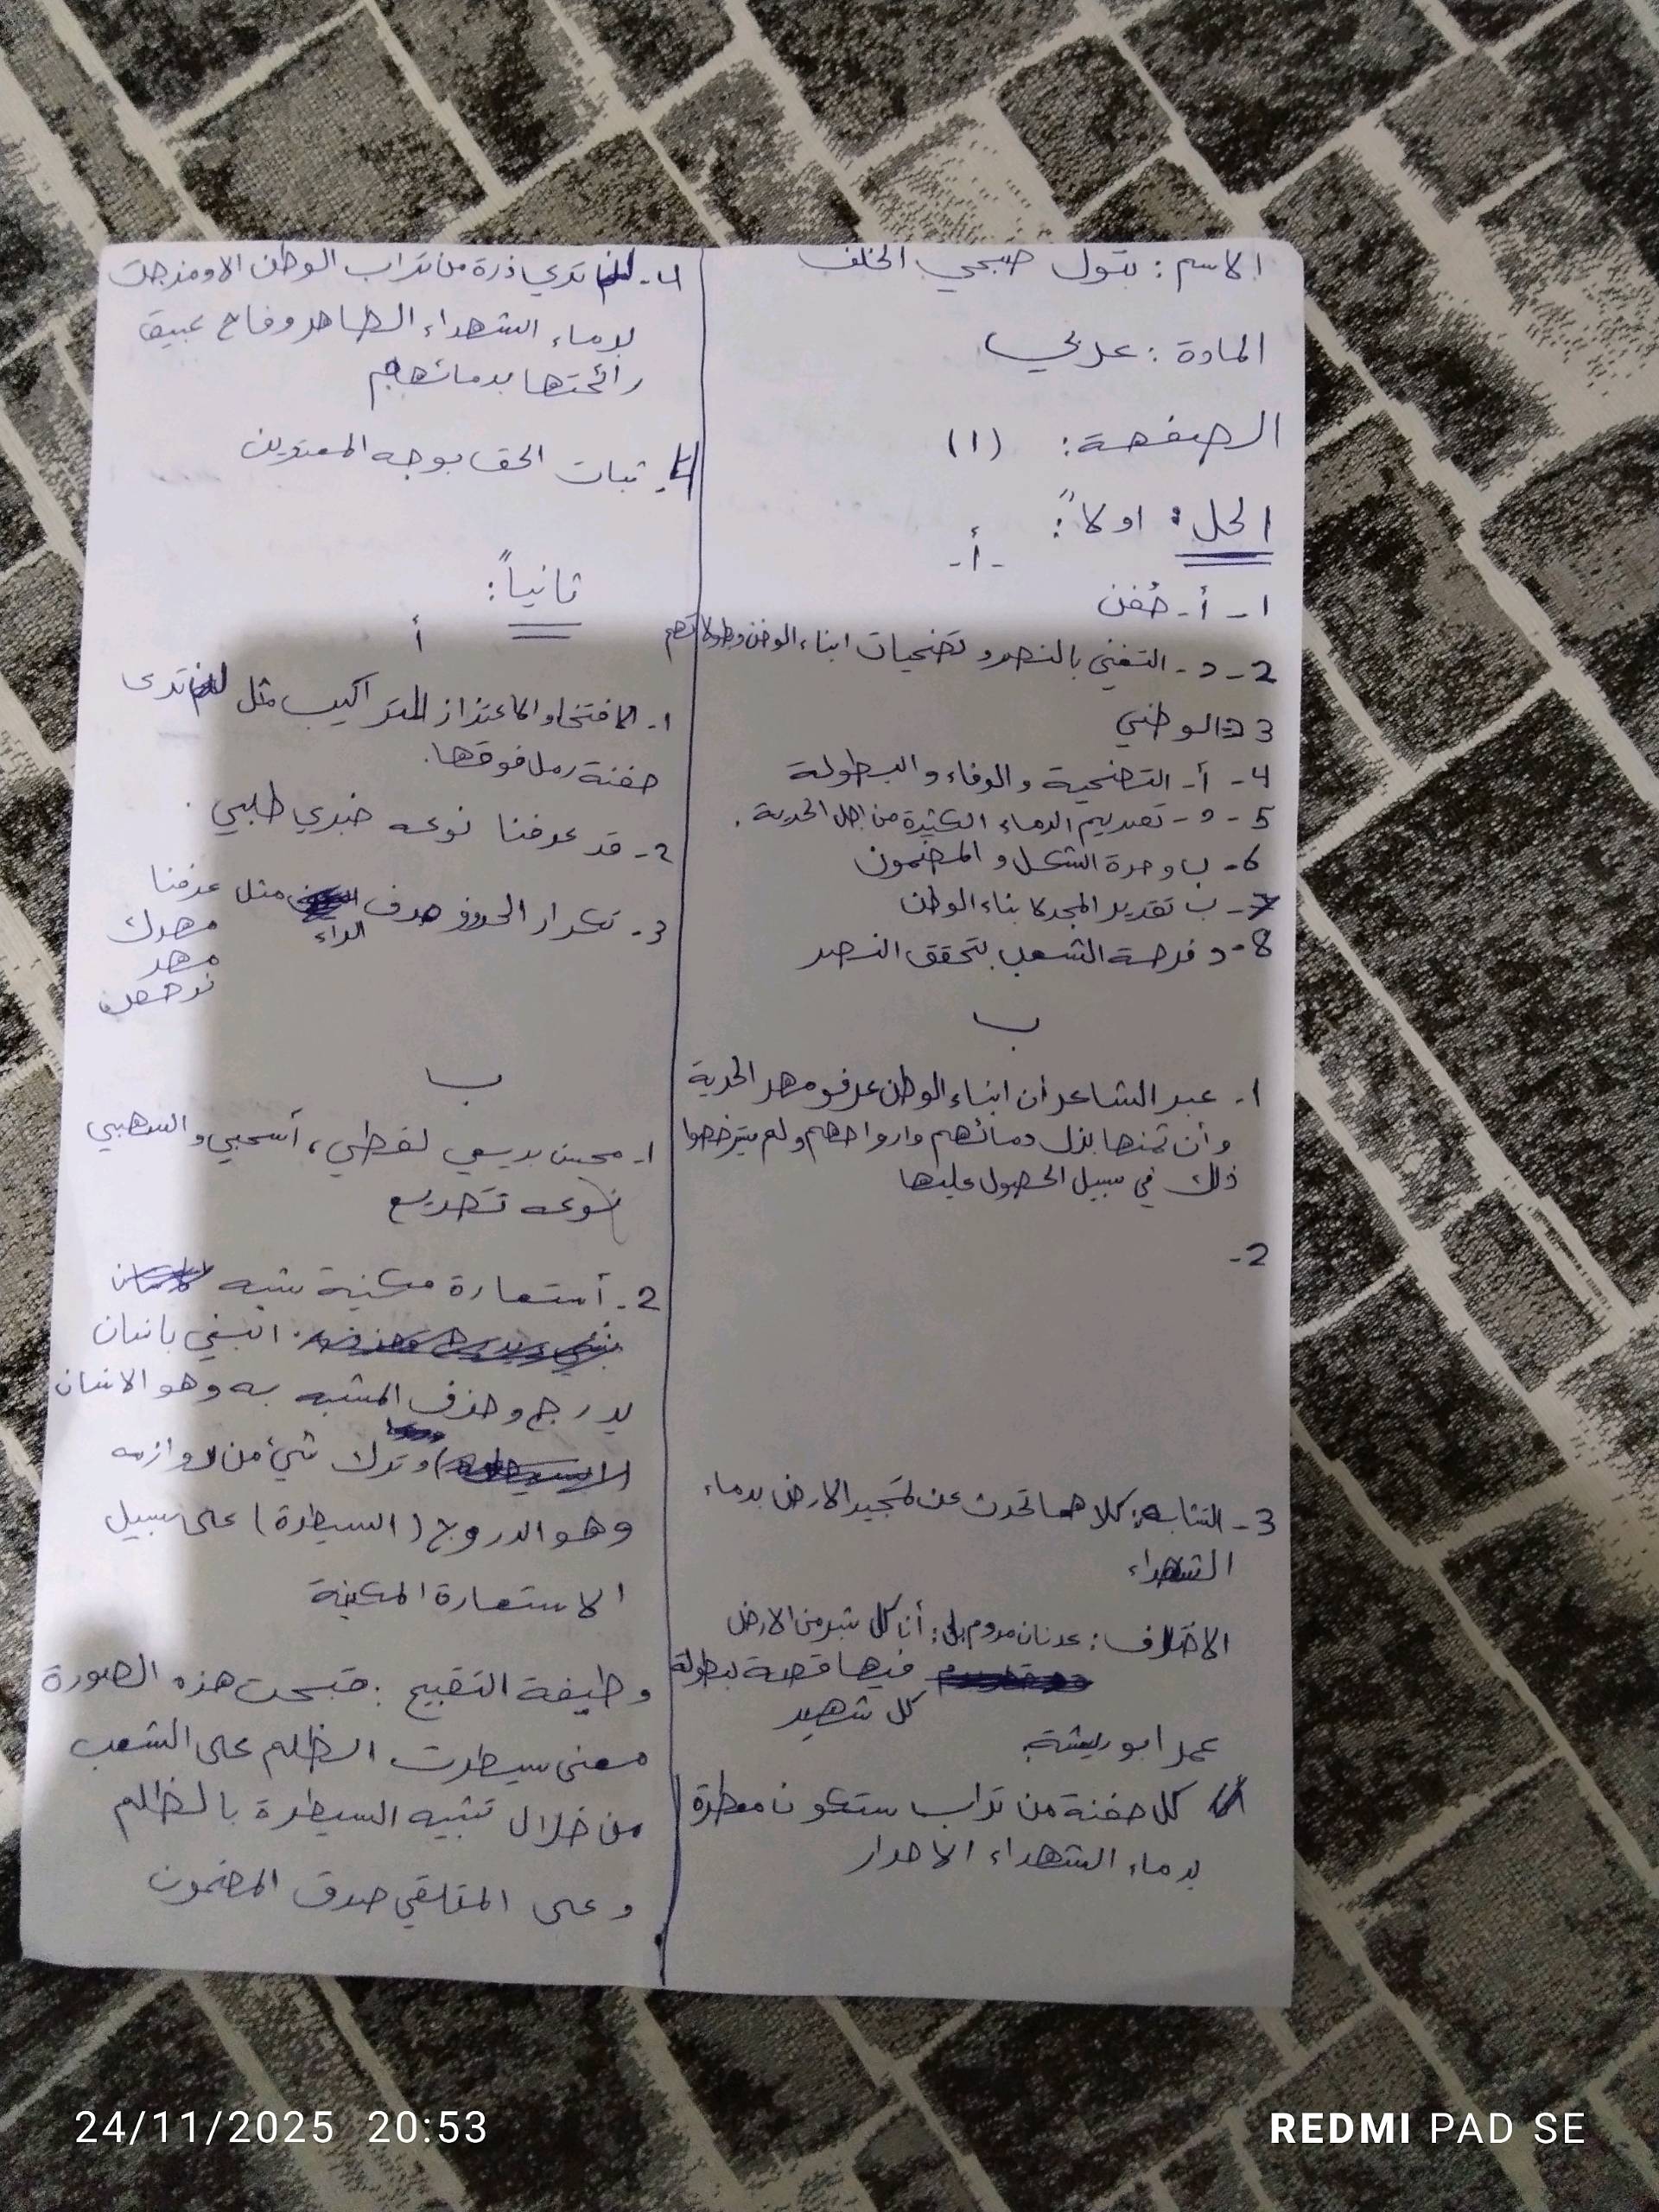 الاسم: بتول صبحي الخلف
المادة: عربي
الصفحة: (١)
الحل: اولاً:
-أ-
١- أ- حُفن
2- د- التغني بالنصر و تضحيات ابناء الوطن وبطولاتهم
3 د الوطني
4- أ- التضحية والوفاء والبطولة
5- د- تقديم الدماء الكثيرة من اجل الحرية.
6- ب وحدة الشكل و المضمون
7- ب تقدير المجد لابناء الوطن
8- د فرحة الشعب بتحقق النصر
ب
١- عبر الشاعر أن ابناء الوطن عرفو مهر الحرية
وأن ثمنها بذل دمائهم وارواحهم ولم يترخصوا
ذلك في سبيل الحصول عليها
2-
3- التشابه: كلاهما تحدث عن تمجيد الارض بدماء
الشهداء
الاختلاف: عدنان مردم بك: أن كل شبر من الارض
فيها قصة بطولة
كل شهيد
عمر ابو ريشة
كل حفنة من تراب ستكون معطرة
بدماء الشهداء الاحرار
4- ترى ذرة من تراب الوطن الا ومزجت
بدماء الشهداء الطاهر وفاح عبيق
رائحتها بدمائهم
4. ثبات الحق بوجه المعتدين
ثانياً:
أ
١- الافتخار والاعتزاز التراكيب مثل لم ترى
حفنة رمل فوقها.
2- قد عرفنا نوعه خبري طلبي.
3- تكرار الحروف حرف الراء مثل عرفنا
مهرك
مهر
نرخص
ب
١- محسن بديعي لفظي، أسحبي و السهبي
نوعه تصريع
2- أستعارة مكنية شبه
البغي بانسان
يدرج وحذف المشبه به وهو الانسان
وترك شيء من لوازمه
وهو الدروج (السيطرة) على سبيل
الاستعارة المكنية
وظيفة التقبيح: قبحت هذه الصورة
معنى سيطرت الظلم على الشعب
من خلال تشبيه السيطرة بالظالم
وعلى المتلقي صدق المضمون
24/11/2025 20:53
REDMI PAD SE